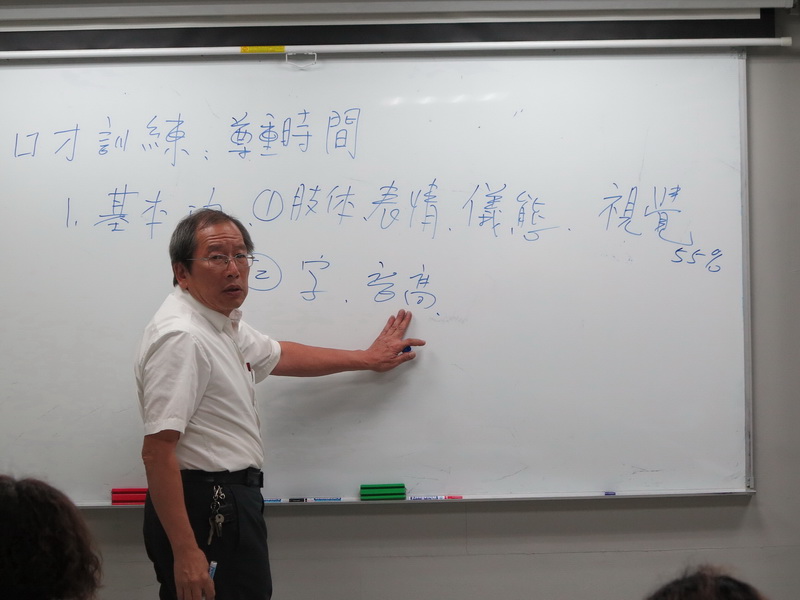 口才訓練：尊重時間
1. 基本功、①肢体、表情、儀態、視覺
55%
② 字、音高、